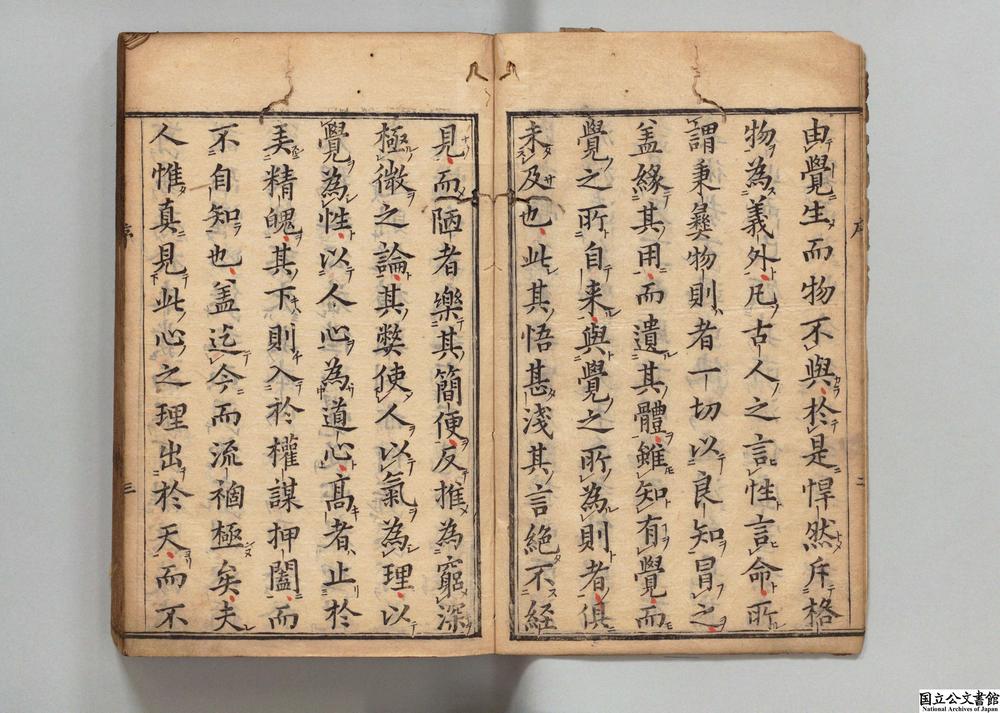 由覺生而物不與於是悍然斥格
物為義外凡古人之言性言命所
謂秉彜物則者一切以良知冒之
盖緣其用而遺其體雖知有覺而
覺之所自来與覺之所為則者俱
未及也此其悟甚淺其言絶不経
見而陋者樂其簡便反推為窮深
極微之論其獘使人以氣為理以
覺為性以人心為道心髙者止於
美精魄其下則入於權謀押闔而
不自知也盖迄今而流禍極矣夫
人惟真見此心之理出於天而不
序
二
序
三
国立公文書館
National Archives of Japan